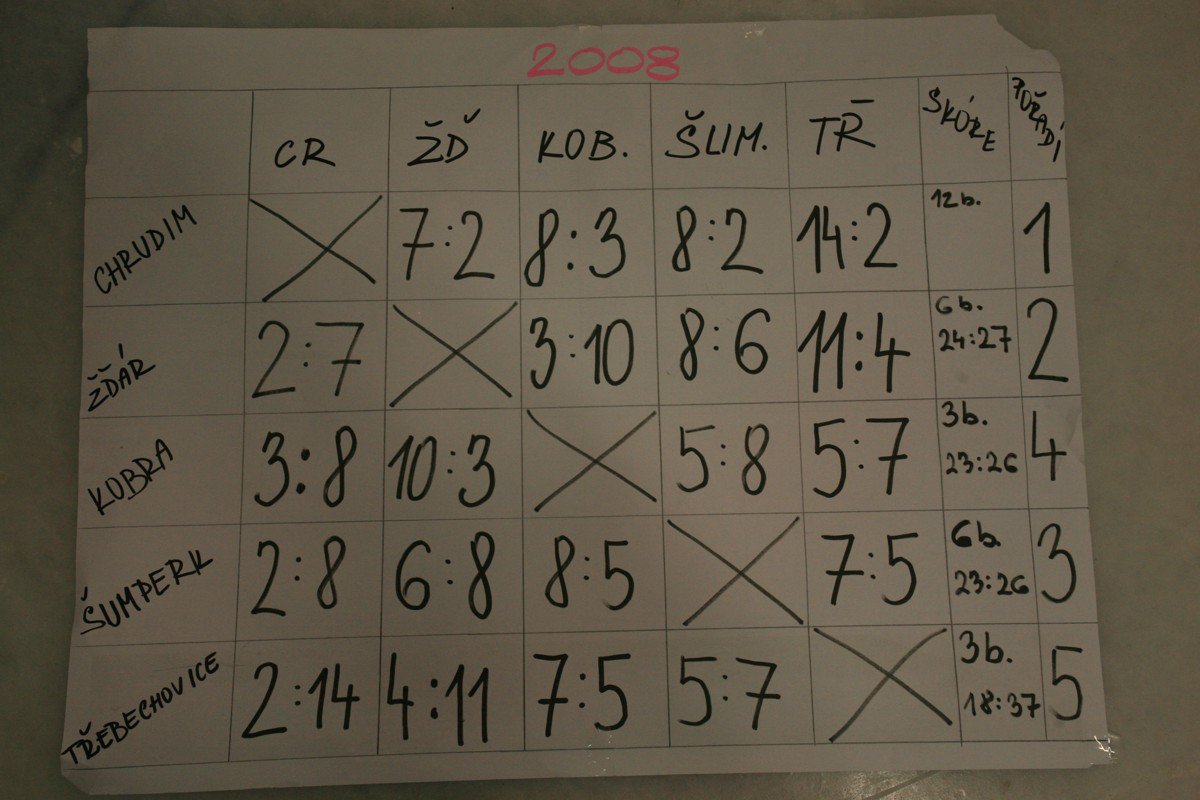 2008
CR ŽĎ KOB. ŠUM. TŘ SKÓRE POŘADÍ
CHRUDIM 7:2 8:3 8:2 14:2 12b. 1
ŽĎÁR 2:7 3:10 8:6 11:4 6b. 24:27 2
KOBRA 3:8 10:3 5:8 5:7 3b. 23:26 4
ŠUMPERK 2:8 6:8 8:5 7:5 6b. 23:26 3
TŘEBECHOVICE 2:14 4:11 7:5 5:7 3b. 18:37 5